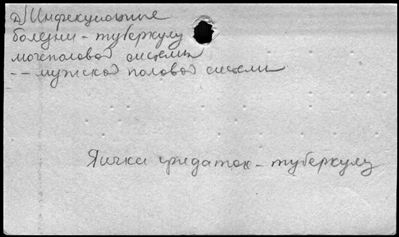 д) Инфекционные
болезни - туберкулёз
мочеполовой системы
-- мужской половой системы
Яичка придаток - туберкулёз